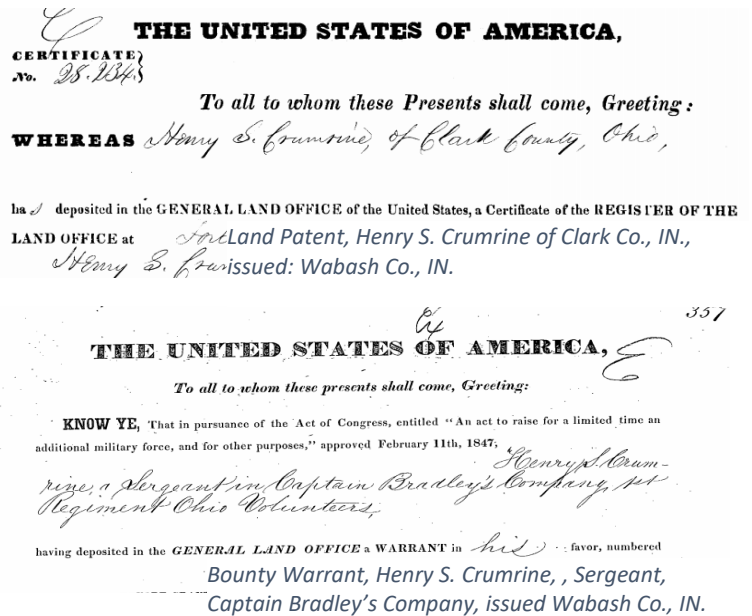 THE UNITED STATES OF AMERICA,
CERTIFICATE
No. 28.234.
To all to whom these Presents shall come, Greeting:
WHEREAS Henry S. Crumrine, of Clark County, Ohio,
ha s deposited in the GENERAL LAND OFFICE of the United States, a Certificate of the REGISTER OF THE
LAND OFFICE at Fort
Land Patent, Henry S. Crumrine of Clark Co., IN.,
Henry S. Crum
issued: Wabash Co., IN.
357
THE UNITED STATES OF AMERICA,
To all to whom these presents shall come, Greeting:
KNOW YE, That in pursuance of the Act of Congress, entitled "An act to raise for a limited time an
additional military force, and for other purposes," approved February 11th, 1847;
Henry S. Crum-
rine, a Sergeant in Captain Bradley's Company, 1st
Regiment Ohio Volunteers,
having deposited in the GENERAL LAND OFFICE a WARRANT in his favor, numbered
Bounty Warrant, Henry S. Crumrine, , Sergeant,
Captain Bradley's Company, issued Wabash Co., IN.